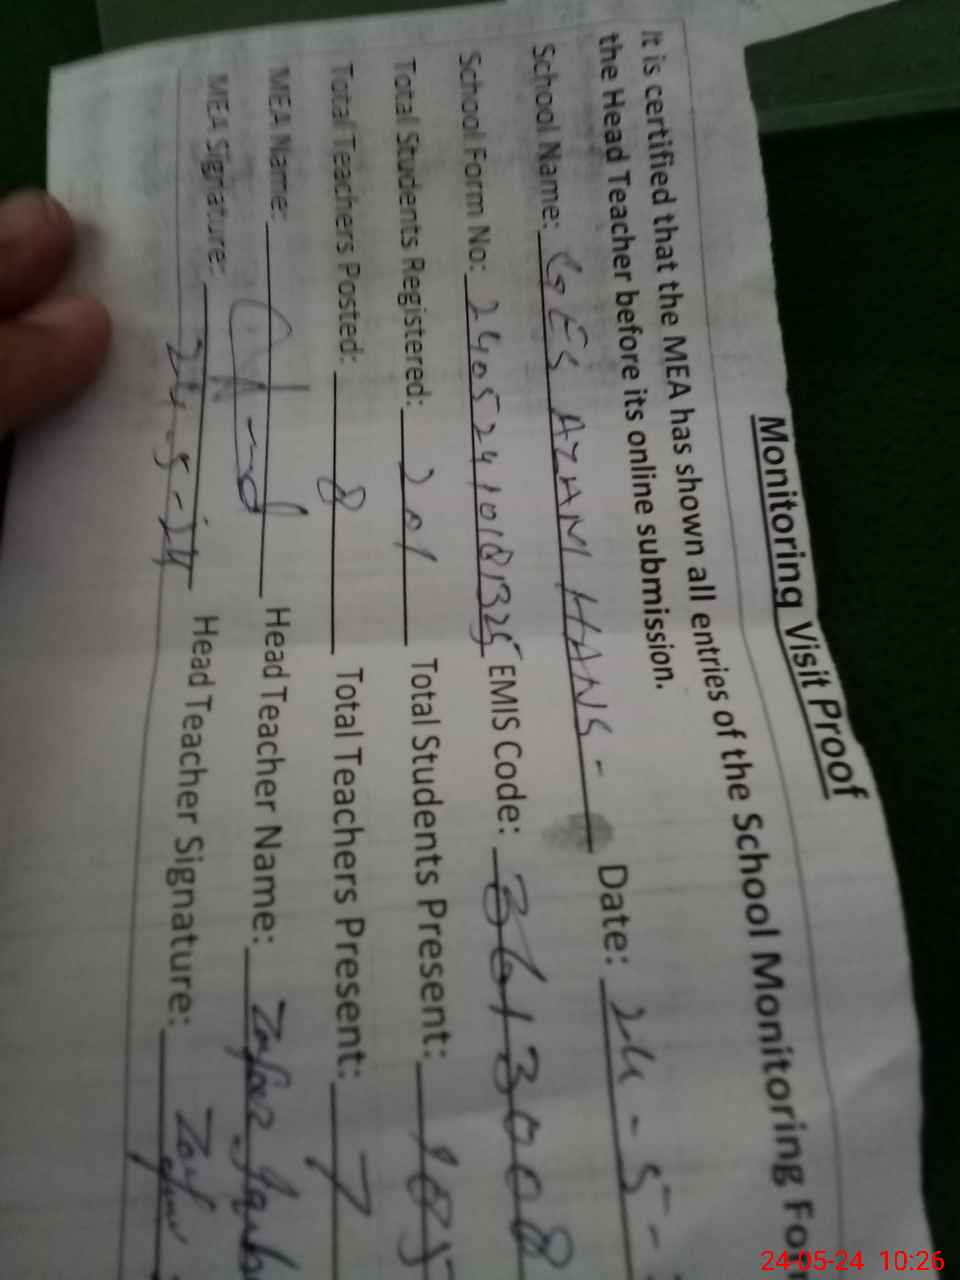 Monitoring Visit Proof
It is certified that the MEA has shown all entries of the School Monitoring For
the Head Teacher before its online submission.
School Name: GES AZAM HANS - Date: 24 - 5 -
School Form No: 24052410181325 EMIS Code: 36130008
Total Students Registered: 201 Total Students Present: 185
Total Teachers Posted: 8 Total Teachers Present: 7
MEA Name: Head Teacher Name: Zafar
MEA Signature: 24-5-24 Head Teacher Signature: Zafar
24-05-24 10:26